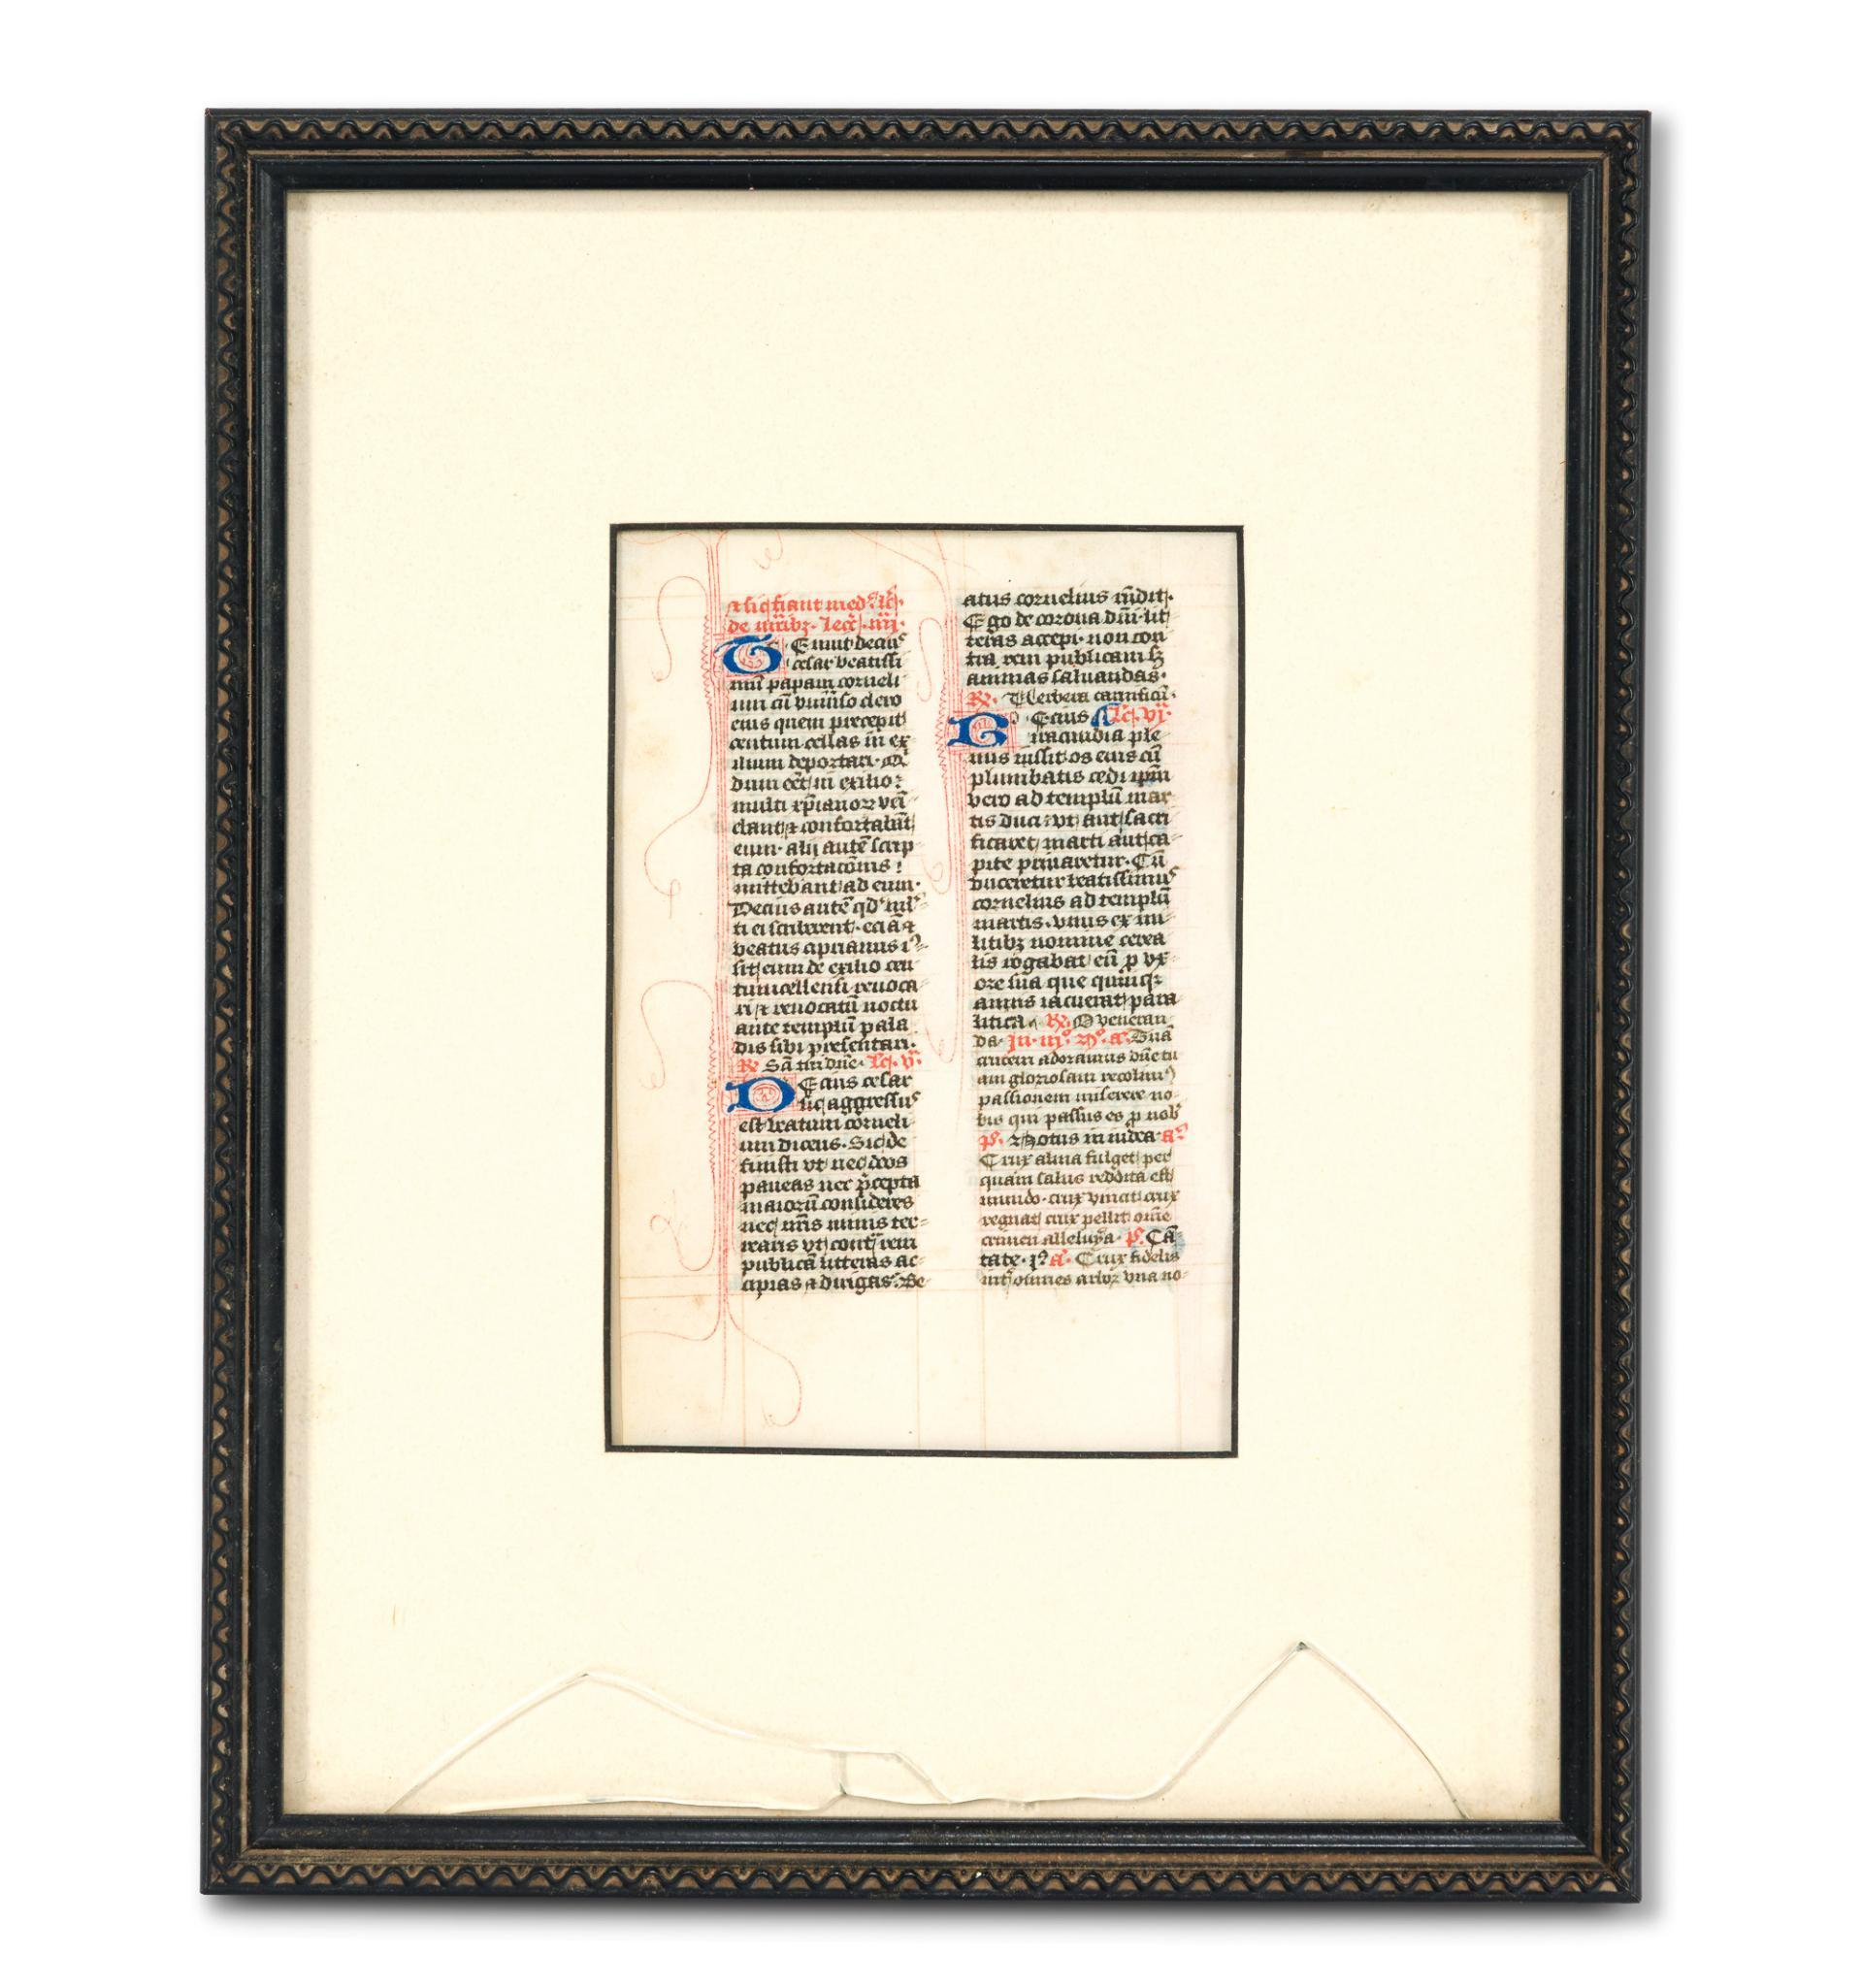 ⁊ sic fiant med̄ lc̄.
de mr̄ibꝫ. Lecc̄. iiij.
Tenuit deciꝰ
cesar beatissi
mū papam corneli
um cū vniūso clero
eius quem precepit
centum cellas in ex
ilium deportari. Q
dum eēt in exilio:
multi xp̄ianoꝝ veī
ebant ⁊ confortabāt
eum. alij autē scrip
ta confortacōnis
mittebant ad eum.
Decius autē qd̓
ti ei scriberent.
beatus ciprianus
sit eum de exilio cen
tumcellensi reuoca
ri ⁊ reuocatū noctu
ante templū pala
dis sibi presentari.
℟. Sc̄ tui dn̄e. Lc̄. v.
Decius cesar
sic aggressuꝰ
est beatum corneli
um dicens. Sic de
finisti vt nec deos
paueas nec p̄cepta
maioꝝ consideres
nec minis ter
rearis vt cont̄ rem
publicā litteras ac
cipias ⁊ dirigas. Be
atus cornelius rn̄dit.
Ego de corona dn̄i lit
teras accepi. non con
tra rem publicam sꝫ
animas saluandas.
℟. Verbera carnificū.
Decius Lc̄. vj.
iracundia ple
nus iussit os eius cū
plumbatis cedi ipm̄
vero ad templū mar
tis duci: vt aut sacri
ficaret marti aut ca
pite priuaretur. Cū
duceretur beatissimuꝰ
cornelius ad templū
martis. vnus ex mi
litibꝫ nomine cerea
lis rogabat eū ꝓ vx
ore sua que quinqꝫ
annis iacuerat para
litica. ℟. O veneran
da. Jn. iij. n̊. a. Tuā
crucem adoramus dn̄e tu
am gloriosam recolimꝰ
passionem miserere no
bis qui passus es ꝓ nob̄
p̄s. Notus in iudea a.
Crux alma fulget per
quam salus reddita est
mundo. crux vincit crux
regnat crux pellit om̄e
crimen alleluya. p̄s. Cā
tate. a. Crux fidelis
int̄ omnes arboꝝ vna no